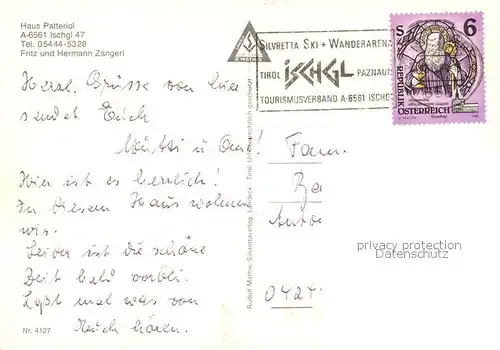 Haus Patteriol
A-6561 Ischgl 47
Tel. 05444-5328
Fritz und Hermann Zangerl
SILVRETTA SKI + WANDERARENA
TIROL ISCHGL PAZNAUN
TOURISMUSVERBAND A-6561 ISCHGL
S 6
REPUBLIK
ÖSTERREICH
Herzl. Grüsse von hier
sendet Euch
Mutti u. Oma!
Hier ist es herrlich!
In diesem Haus wohnen
wir.
Leider ist die schöne
Zeit bald vorbei.
Laßt mal was von
Euch hören.
Fam.
0424
Nr. 4127
Rudolf Mathis, Silvrettaverlag, Landeck Tirol Urheberrechtlich geschützt
privacy protection
watermark